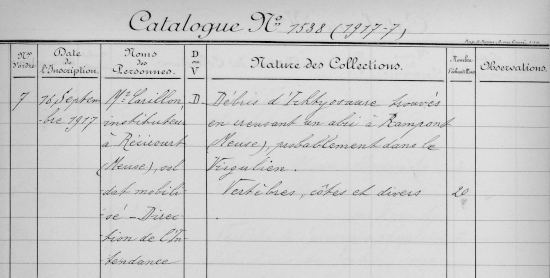 Catalogue N° 1538 (1917-7)
Nos d'ordre
Date de l'Inscription.
Noms des Personnes.
D ou V
Nature des Collections.
Nombre
Observations.
7
16 Septem-
bre 1917
Mr Carillon,
instituteur
à Récicourt
(Meuse), sol-
dat mobili-
sé - Direc-
tion de l'In-
tendance
D
Débris d'Ichtyosaure trouvés
en creusant un abri à Rampont
(Meuse), probablement dans le
Virgulien.
Vertèbres, côtes et divers
20